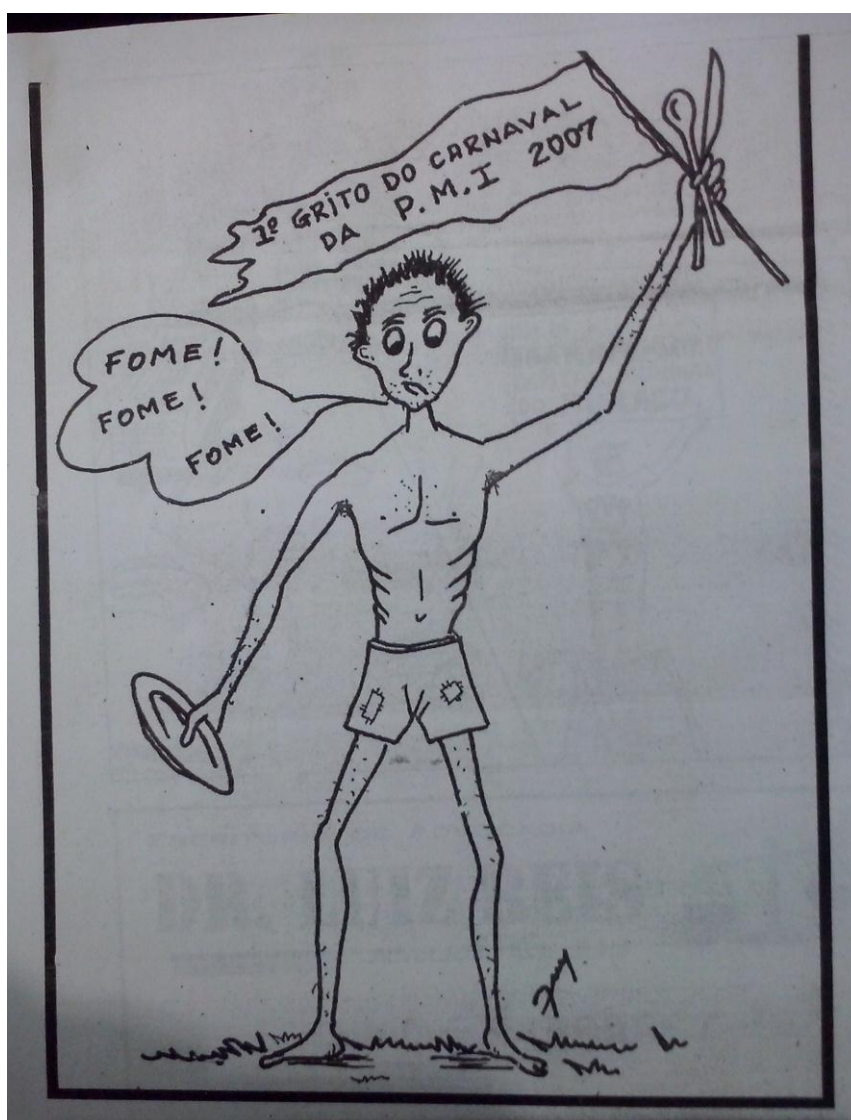 1º GRITO DO CARNAVAL
DA P.M.I 2007
FOME!
FOME!
FOME!